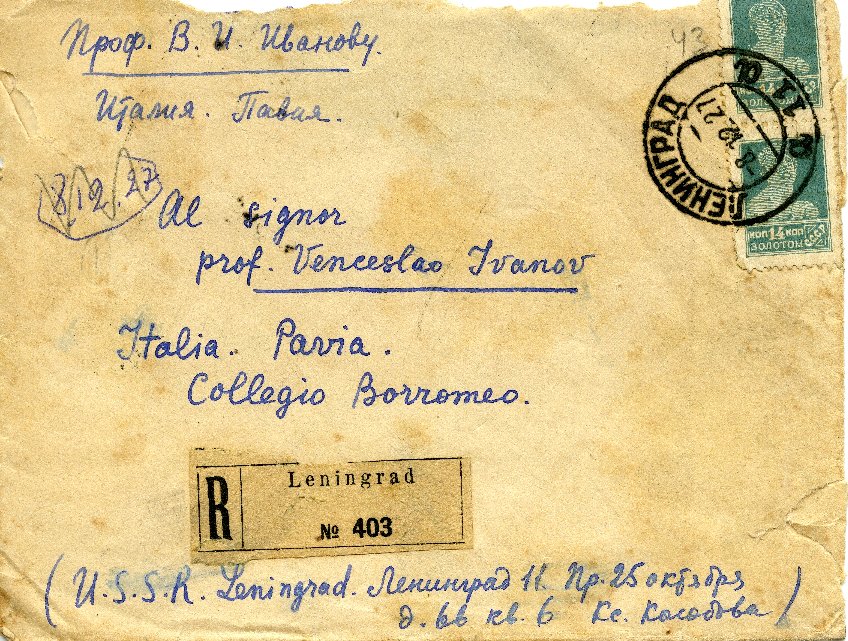 Проф. В. И. Иванову.
Италия. Павия.
43
8/12.27
Al signor
prof. Venceslao Ivanov
Italia. Pavia.
Collegio Borromeo.
ЛЕНИНГРАД
-8 12 27
КОП 14 КОП
ЗОЛОТОМ
СССР
R
Leningrad
№ 403
(U.S.S.R. Leningrad. Ленинград 11 Пр. 25 октября
д. 66 кв. 6 Кс. Колобова)